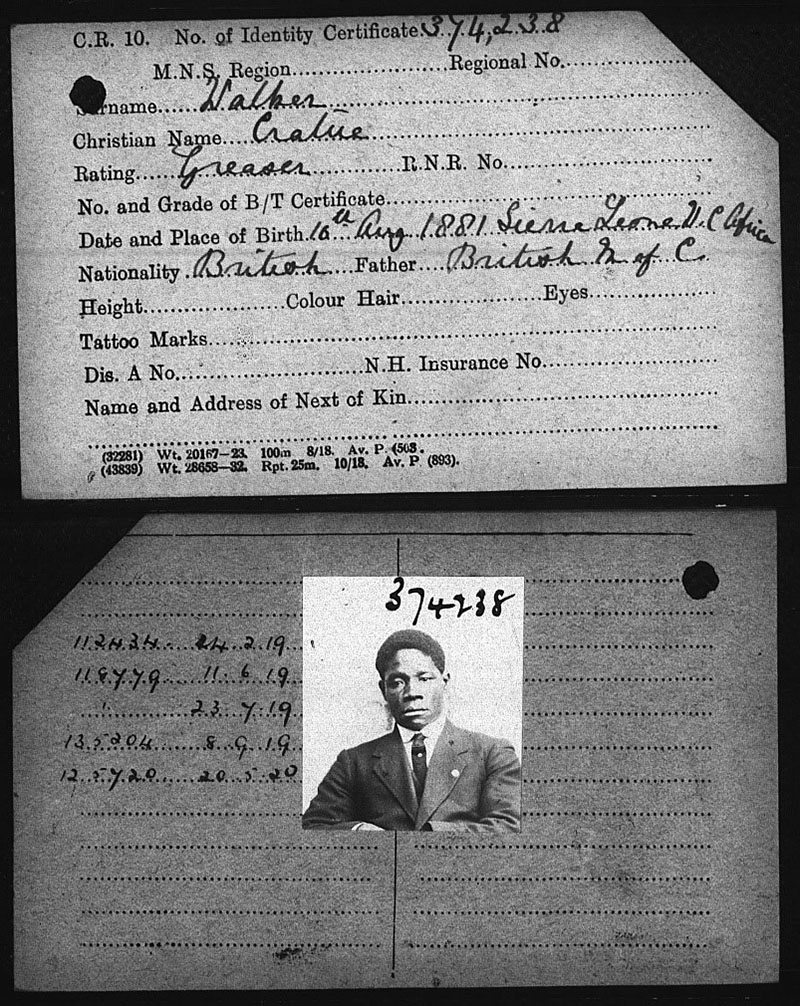 C.R. 10. No. of Identity Certificate 374,238
M.N.S. Region........................Regional No.
Surname......Walker
Christian Name....
Rating......Greaser..............R.N.R. No.
No. and Grade of B/T Certificate
Date and Place of Birth. 16th Aug 1881. Sierra Leone W.C Africa
Nationality. British....Father....British M of C.
Height.................Colour Hair.................Eyes
Tattoo Marks
Dis. A No.......................N.H. Insurance No.
Name and Address of Next of Kin
(32281) Wt. 20167—23. 100m 8/18. Av. P. (503.
(43839) Wt. 28658—32. Rpt. 25m. 10/18. Av. P. (893).
374238
112434 24.2.19
118779 11.6.19
23 7.19
135204 8 9 19
12 5720 20.5.20